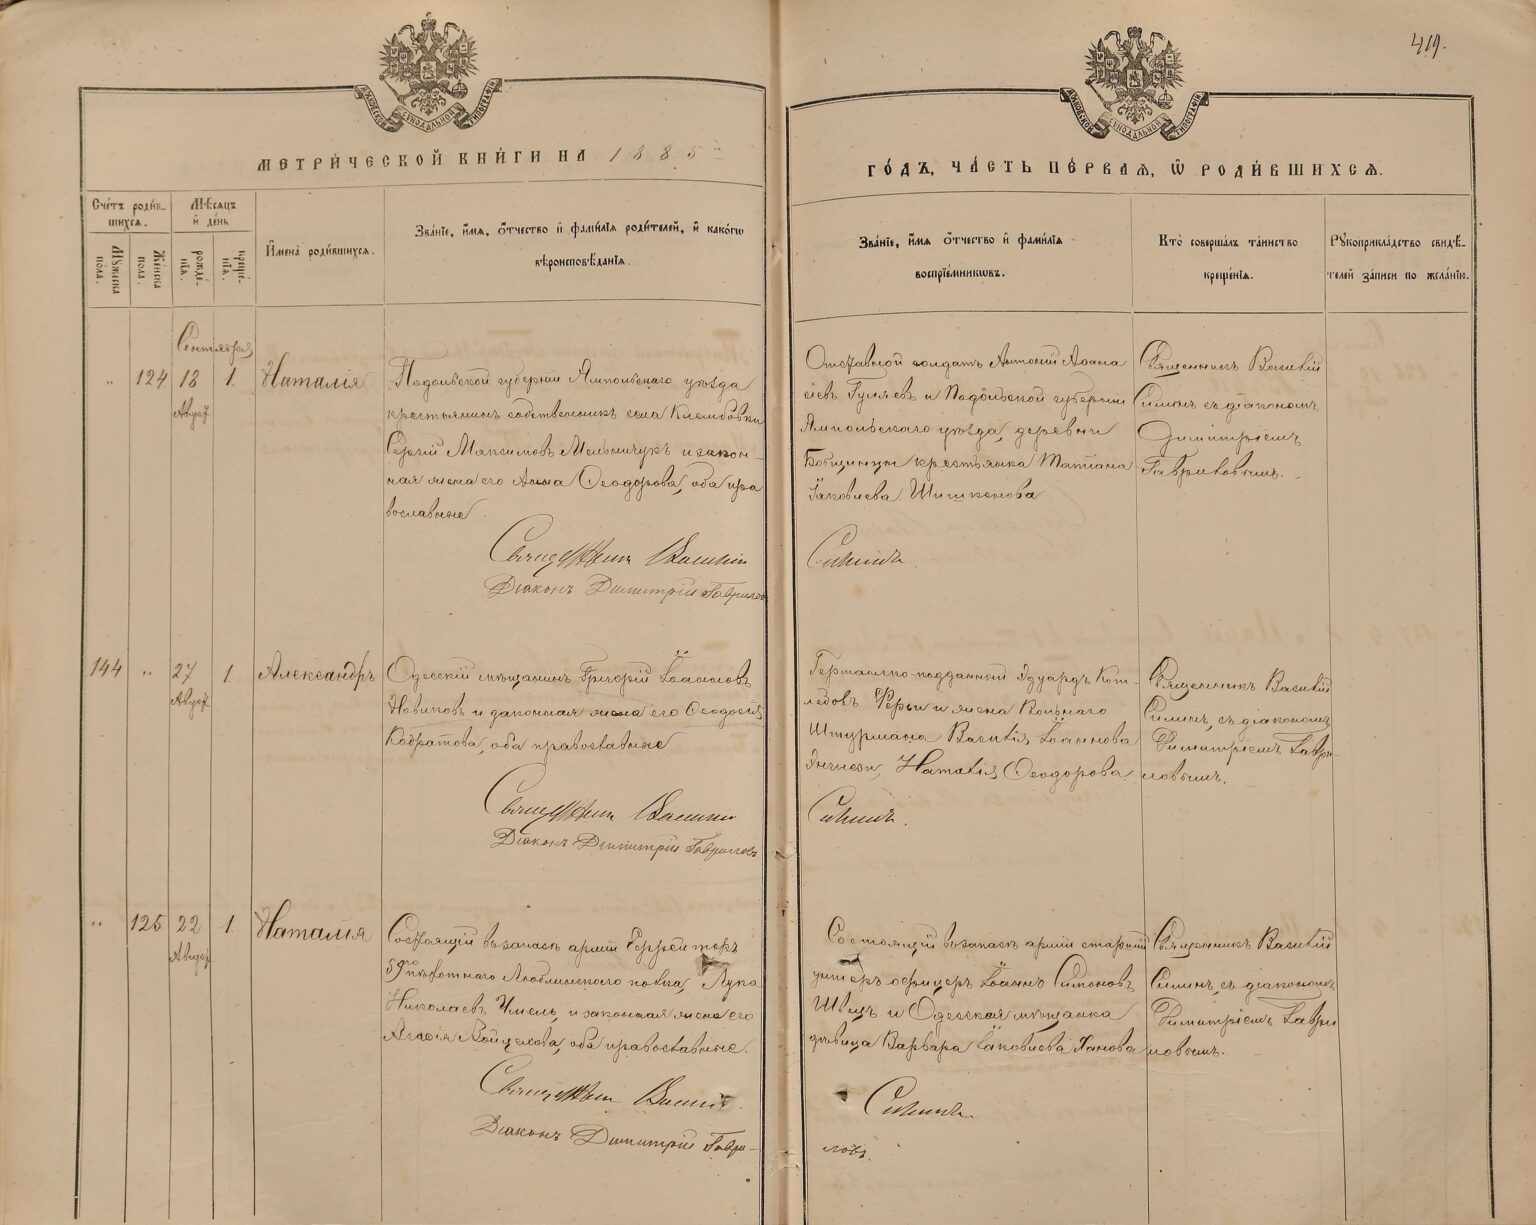 419.
МЕТРИ́ЧЕСКОЙ КНИ́ГИ НА 1885й
ГО́ДЪ, ЧА́СТЬ ПЕ́РВАЯ, Ѿ РОДИ́ВШИХСЯ.
Сче́тъ роди́в-
шихся.
Му́жеска
по́ла.
Же́нска
пола.
Мѣсяцъ
и҆ де́нь
рожде́-
нїя.
креще́-
нїя.
И҆мена̀ роди́вшихся.
Зва́нїе, и҆́мя, ѻ҆́тчество и҆ фами́лїя роди́телей, и҆ како́гѡ
вѣроисповѣ́данїя.
Зва́нїе, и҆́мя ѻ҆́тчество и҆ фами́лїя
воспрїе́мникѡвъ.
Кто̀ соверша́лъ та́инство
креще́нїя.
Рꙋкоприкла́дство свидѣ́-
телей за́писи по жела́нїю.
Сентября
" 124 18 1. Наталія
Август
Подольской губерніи Ямпольскаго уѣзда
крестьянинъ собственникъ села Клембовки
Сергій Максимовъ Мельничукъ и закон-
ная жена его Анна Ѳеодорова, оба пра
вославные.
Священникъ Василій
Діаконъ Димитрій Гаврилов
Отставной солдатъ Антоній Аѳана
сіевъ Гуляевъ и Подольской губерніи
Ямпольскаго уѣзда, деревни
крестьянка Татіана
Іаковлева Шишкенова
Силинъ.
Священникъ Василій
Силинъ съ діакономъ
Димитріемъ
Гавриловымъ.
144 " 27 1. Александръ
Август
Одесскій мѣщанинъ Григорій Іоанновъ
Новиковъ и законная жена его Ѳеодосія
оба православные
Священникъ Василій
Діаконъ Димитрій Гавриловъ
Германско-подданный Эдуардъ Кот-
ледовъ и жена Вольнаго
Штурмана Василія Іоаннова
Наталія Ѳеодорова
Силинъ.
Священникъ Василій
Силинъ, съ діакономъ
Димитріемъ Гаври-
ловымъ.
" 125 22 1. Наталія
Август
Состоящій въ запасѣ арміи Ефрейторъ
59го пѣхотнаго Люблинскаго полка, Лука
Николаевъ и законная жена его
Агафія оба православные.
Священникъ Василій
Діаконъ Димитрій Гаври-
Состоящій въ запасѣ арміи старшій
унтеръ офицеръ Іоаннъ Симоновъ
Швецъ и Одесская мѣщанка
дѣвица Варвара Іаковлева Ханова
Силинъ
ловъ.
Священникъ Василій
Силинъ, съ діакономъ
Димитріемъ Гаври
ловымъ.